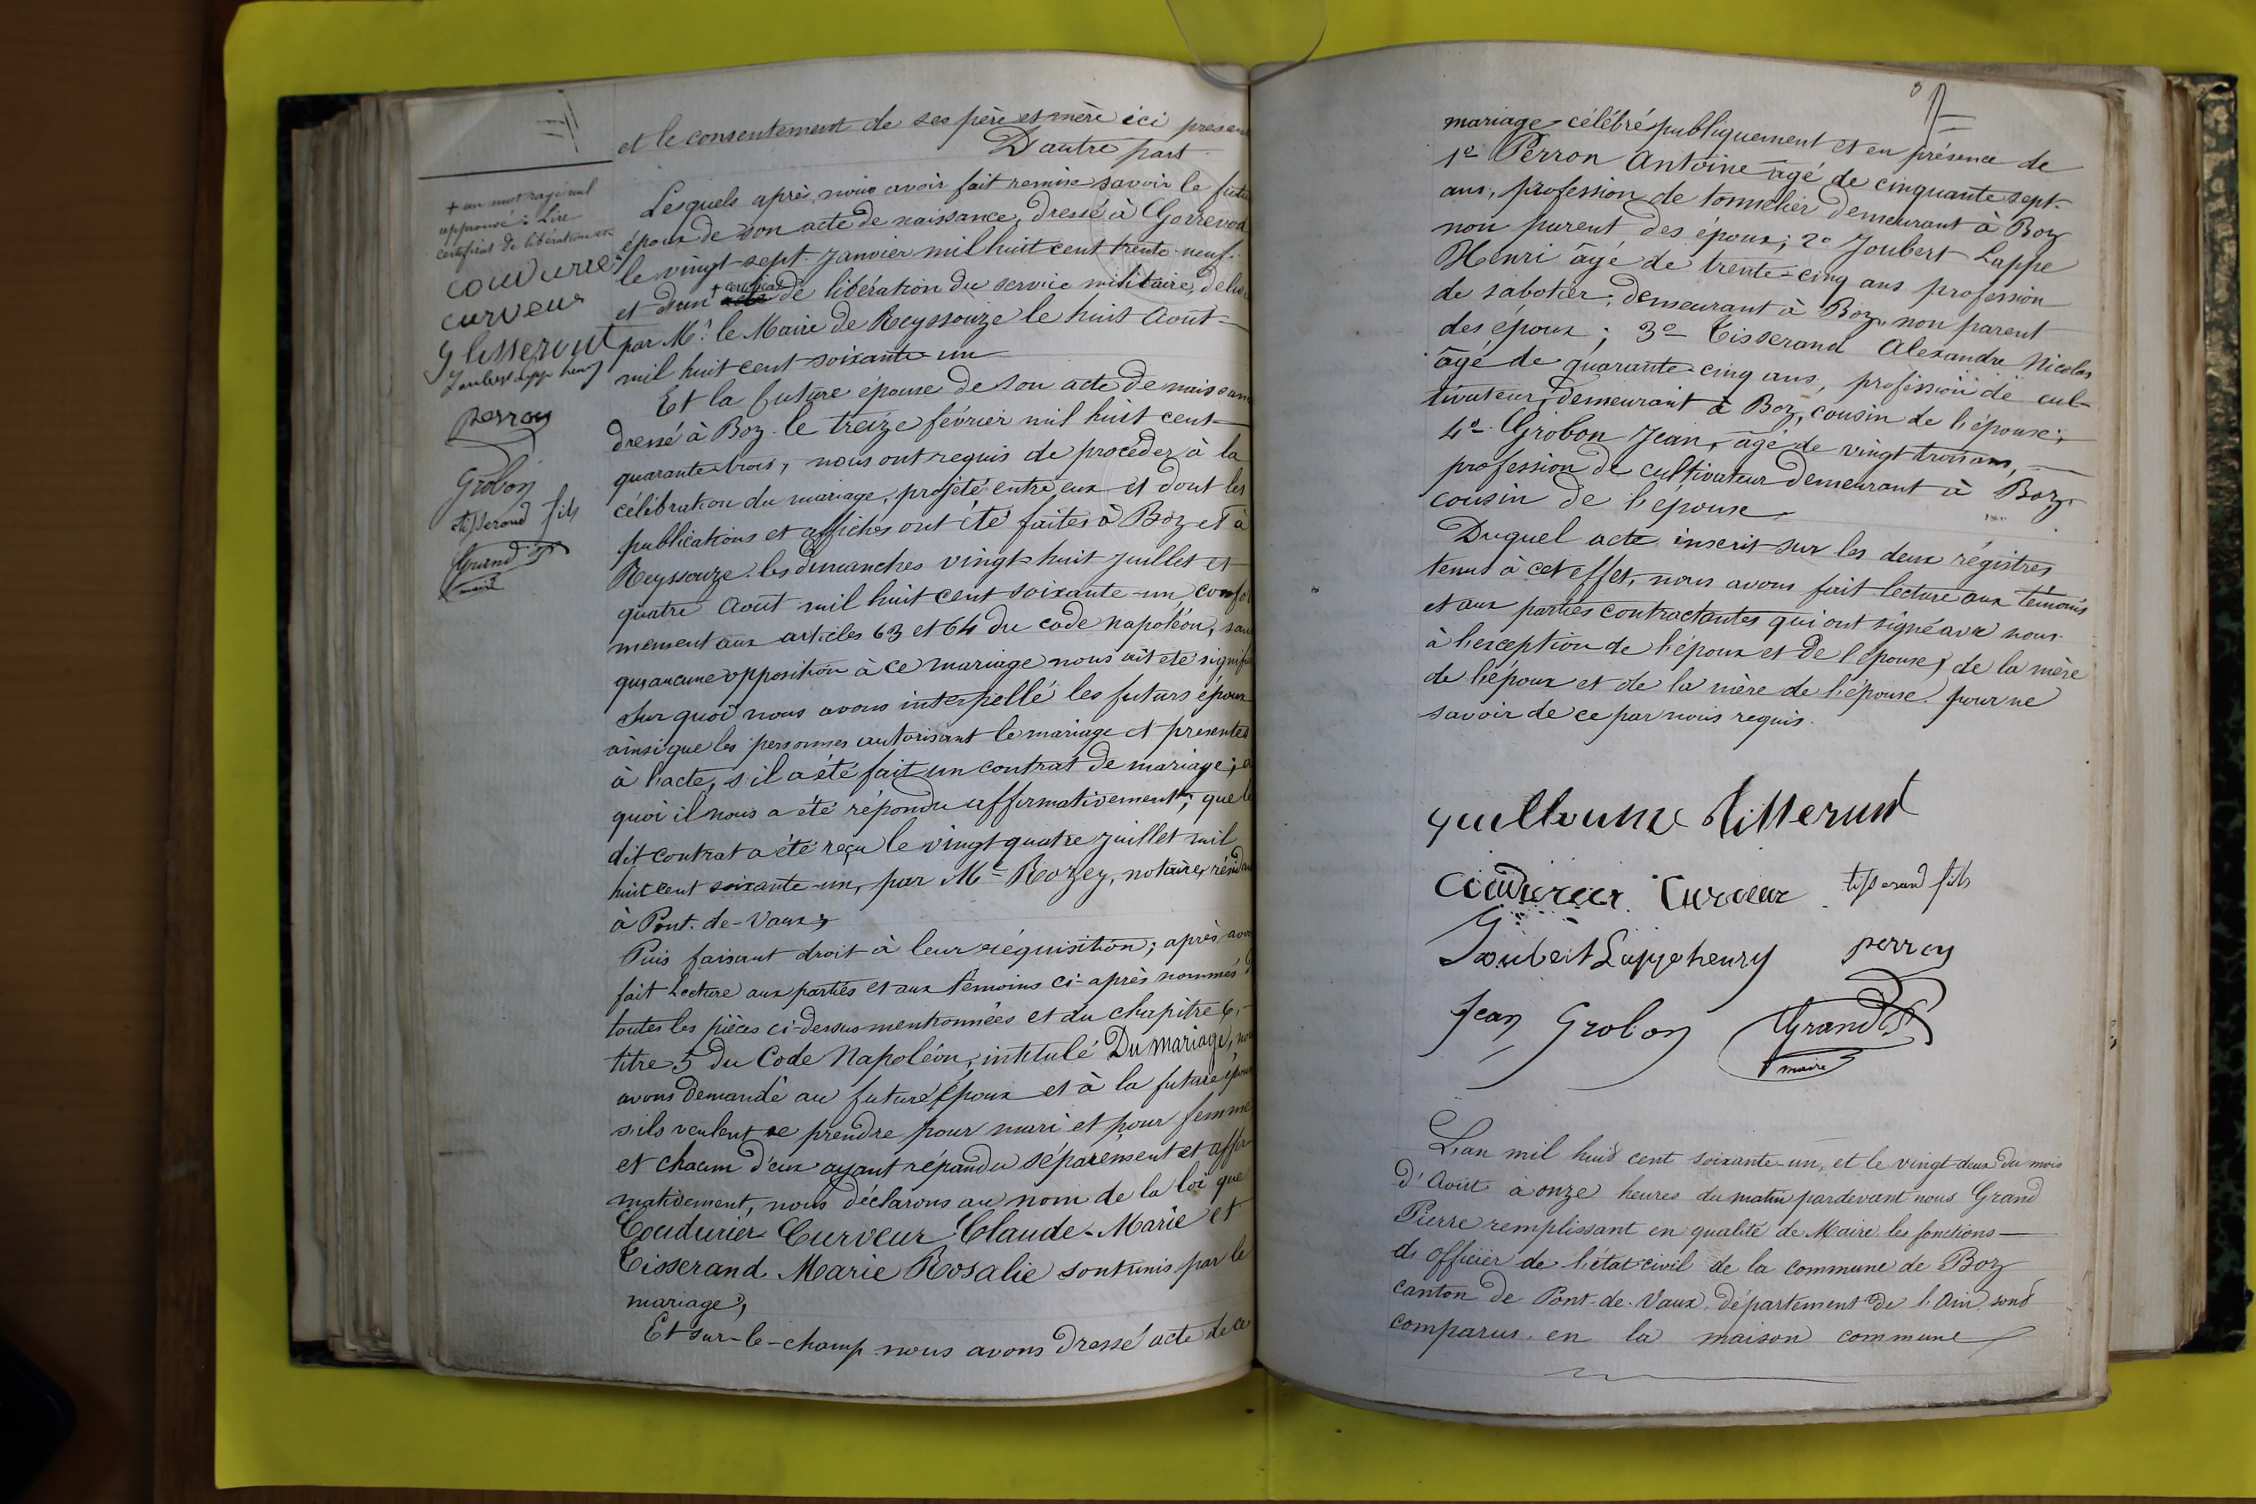 et le consentement de ses père et mère ici présent
D'autre part
Lesquels après nous avoir fait remise savoir le futur
époux de son acte de naissance, dressé à Gorrevod
le vingt-sept Janvier mil huit cent trente-neuf.
et d'un + certificat de libération du service militaire, délivré
par Mr. le Maire de Reyssouze le huit Août
mil huit cent soixante-un
Et la future épouse de son acte de naissance
dressé à Boz le treize février mil huit cent
quarante-trois, nous ont requis de procéder à la
célébration du mariage, projeté entre eux et dont les
publications et affiches ont été faites à Boz et à
Reyssouze les dimanches vingt-huit Juillet et
quatre Août mil huit cent soixante-un confor
mement aux articles 63 et 64 du code napoléon, sans
qu'aucune opposition à ce mariage nous ait été signifié
Sur quoi nous avons interpellé les futurs époux
ainsi que les personnes autorisant le mariage et présentes
à l'acte, s'il a été fait un contrat de mariage; à
quoi il nous a été répondu affirmativement, que le
dit contrat a été reçu le vingt quatre Juillet mil
huit cent soixante-un, par Me Rozey, notaire, résidant
à Pont-de-Vaux,
Puis faisant droit à leur réquisition; après avoir
fait Lecture aux parties et aux témoins ci-après nommés de
toutes les pièces ci-dessus mentionnées et du chapitre 6,
titre 5 du Code Napoléon, intitulé Du Mariage, nous
avons demandé au futur Epoux et à la future épouse
s'ils veulent se prendre pour mari et pour femme
et chacun d'eux ayant répondu séparément et affir
mativement, nous déclarons au nom de la loi que
Coudurier Curveur Claude-Marie et
Tisserand Marie Rosalie sont unis par le
mariage,
Et sur-le-champ nous avons dressé acte de ce
+ un mot rayé nul
approuvé: Lire
certificat de libération
Coudurier
curveur
g tisserand
Joubert lappe henry
perron
Grobon
tisserand fils
Grand P
maire
mariage célébré publiquement et en présence de
1e Perron Antoine âgé de cinquante sept
ans, profession de tonnelier demeurant à Boz
non parent des époux; 2e Joubert-Lappe
Henri âgé de trente-cinq ans profession
de sabotier, demeurant à Boz, non parent
des époux; 3e Tisserand Alexandre Nicolas
âgé de quarante-cinq ans, profession de cul-
tivateur, demeurant à Boz, cousin de l'épouse;
4e Grobon Jean, âgé de vingt trois ans,
profession de cultivateur demeurant à Boz
cousin de l'épouse
Duquel acte inscrit sur les deux régistres
tenus à cet effet, nous avons fait lecture aux témoins
et aux parties contractantes qui ont signé avec nous
à l'exception de l'époux et de l'épouse, de la mère
de l'époux et de la mère de l'épouse pour ne
savoir de ce par nous requis.
guillaume tisserand
Coudurier Curveur tisserand fils
Joubert Lappe henry perron
Jean Grobon Grand P
maire
L'an mil huit cent soixante-un, et le vingt-deux du mois
d'Août à onze heures du matin pardevant nous Grand
Pierre remplissant en qualité de Maire les fonctions
de officier de l'état civil de la commune de Boz
canton de Pont-de-Vaux, département de l'Ain, sont
comparus en la maison commune